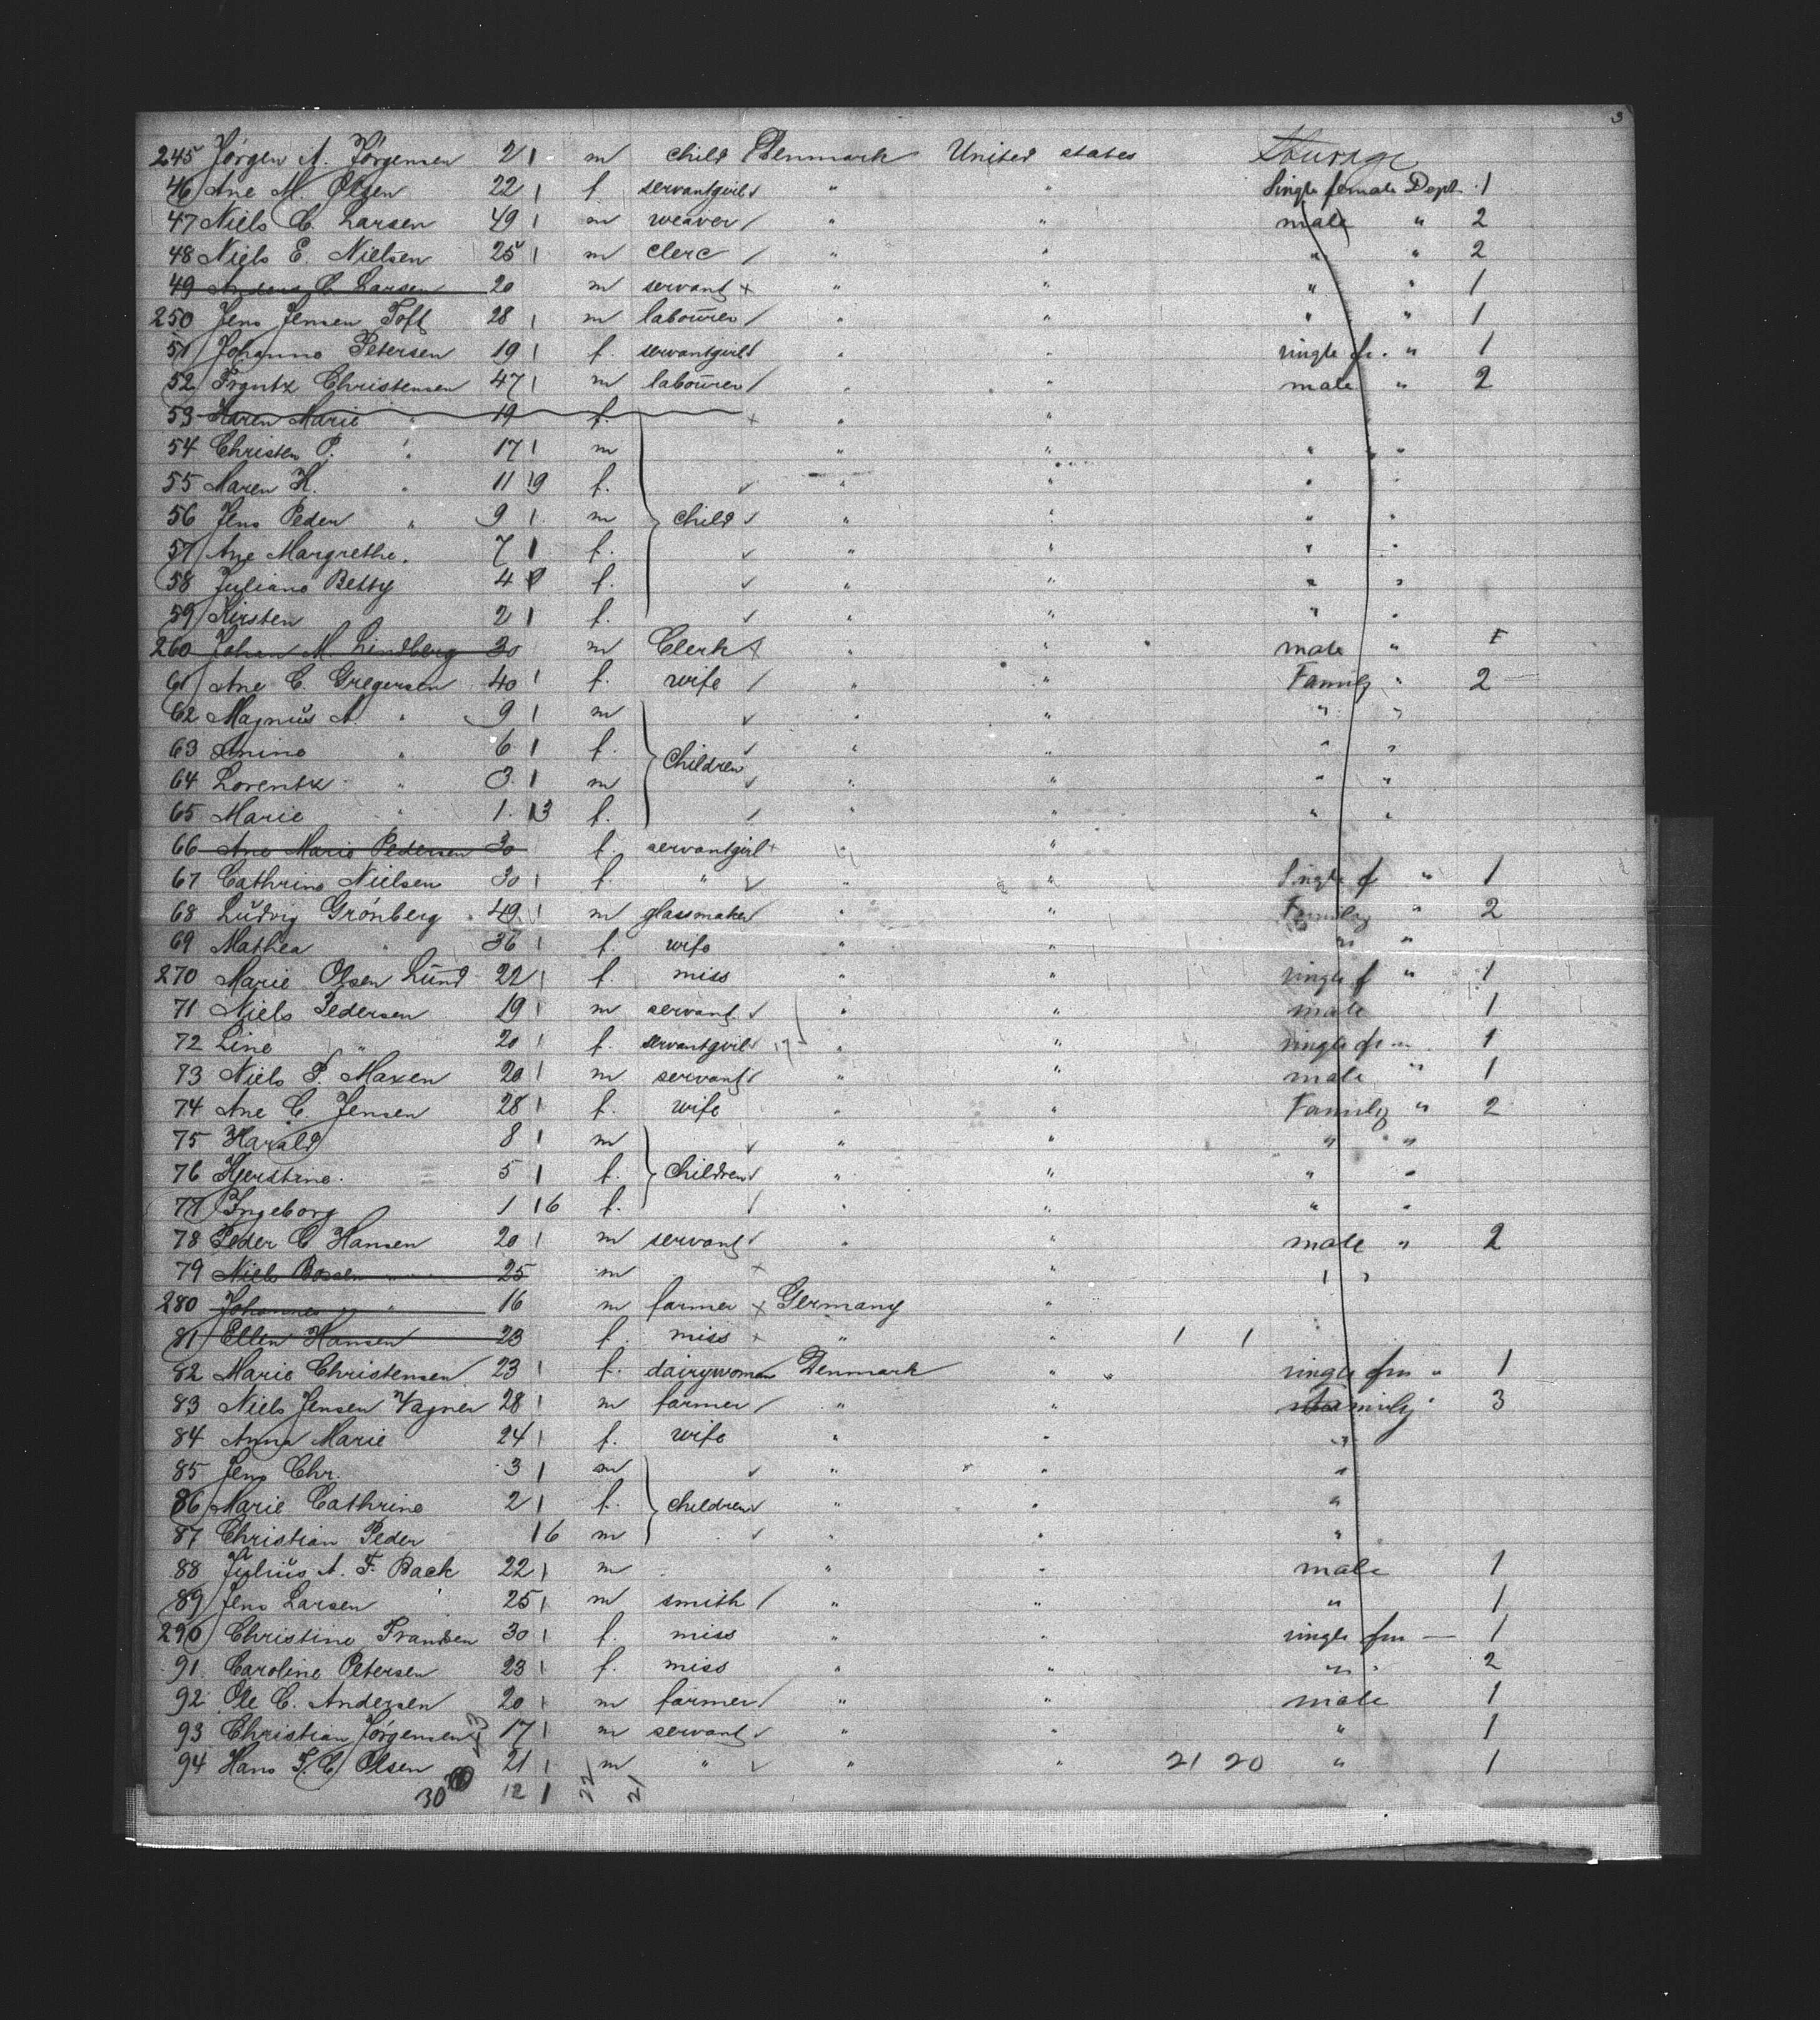 3
245 Jörgen A. Jörgensen 2 1 m child Denmark United states Steerage
46 Ane M. Olsen 22 1 f. servantgirl " " Single female Dept. 1
47 Niels C. Larsen 49 1 m weaver " " male " 2
48 Niels E. Nielsen 25 1 m clerc " " " " 2
49 Anders C. Larsen 20 m servant + " " " " 1
250 Jens Jensen Toft 28 1 m laboürer " " " " 1
51 Johanne Petersen 19 1 f. servantgirl " " single f. " 1
52 Frantz Christensen 47 1 m laboürer " " male " 2
53 Karen Marie " 19 f. + " "
54 Christen P. " 17 1 m " " " "
55 Maren K. " 11 19 f. " " " "
56 Jens Peder " 9 1 m child " " " "
57 Ane Margrethe " 7 1 f. " " " "
58 Juliane Betty 4 f. " " " "
59 Kirsten 2 1 f. " " " "
260 Johan M. Lindberg 30 m Clerk + " " male " 1
61 Ane C. Gregersen 40 1 f. wife " " Family " 2
62 Magnüs A. " 9 1 m " " " "
63 Anine " 6 1 f. Children " " " "
64 Lorentz " 3 1 m " " " "
65 Marie " 1 13 f. " " " "
66 Ane Marie Pedersen 30 f. servantgirl + " "
67 Cathrine Nielsen 30 1 f. " " " Single f " 1
68 Lüdvig Grönberg 49 1 m glassmaker " " Family " 2
69 Mathea " 36 1 f. wife " " " "
270 Marie Olsen Lünd 22 1 f. miss " " single f " 1
71 Niels Pedersen 19 1 m servant " " male 1
72 Line " 20 1 f. servantgirl " " single f " 1
73 Niels P. Maxen 20 1 m servant " " male " 1
74 Ane C. Jensen 28 1 f. wife " " Family " 2
75 Harald 8 1 m " " " "
76 Kjerstine 5 1 f. Children " " " "
77 Ingeborg 1 16 f. " " " "
78 Peder C. Hansen 20 1 m servant " " male " 2
79 Niels Bossen 25 m + " " "
280 Johannes " 16 m farmer + Germany "
81 Ellen Hansen 23 f. miss + " " 1 1
82 Marie Christensen 23 1 f. dairywoman Denmark " single fm " 1
83 Niels Jensen Vagner 28 1 m farmer " " Family " 3
84 Anna Marie 24 1 f. wife " " "
85 Jens Chr. 3 1 m " " "
86 Marie Cathrine 2 1 f. children " " "
87 Christian Peder 16 m " " "
88 Juliüs A. F. Back 22 1 m " " male 1
89 Jens Larsen 25 1 m smith " " " 1
290 Christine Frandsen 30 1 f. miss " " single fm — 1
91 Caroline Petersen 23 1 f. miss " " " " 2
92 Ole C. Andersen 20 1 m farmer " " male 1
93 Christian Jörgensen 17 1 m servant " " " 1
94 Hans C. Olsen 21 1 m " " " 21 20 " 1
30 12 1 22 21